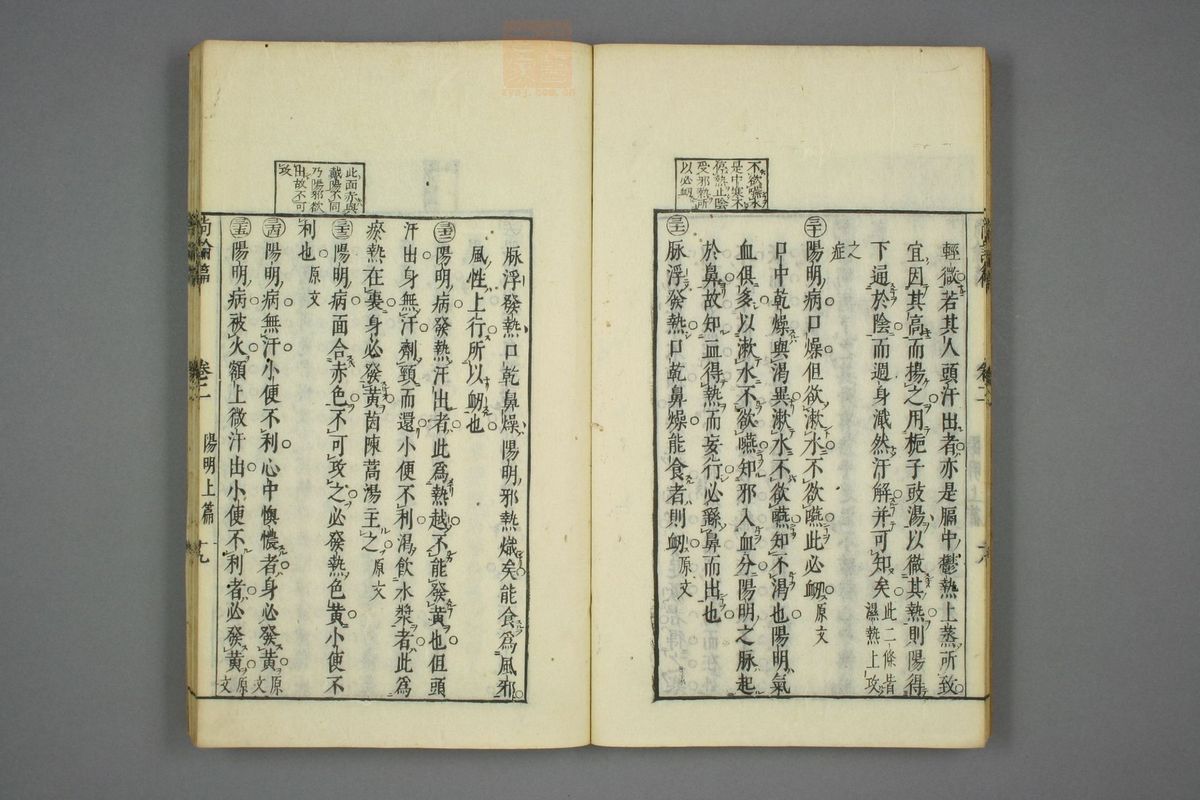 不欲嚥水
是中寒不
停熱止陰
受邪熱所
以必衂
輕微若其人頭汗出者亦是膈中鬱熱上蒸所致
宜因其高而揚之用梔子豉湯以徹其熱則陽得
下通於陰而週身濈然汗解并可知矣此二條昔濕熱上攻
之症
㉚陽明病口燥但欲漱水不欲嚥此必衂原文
口中乾燥與渴異漱水不欲嚥知不渴也陽明氣
血俱多以漱水不欲嚥知邪入血分陽明之脉起
於鼻故知血得熱而妄行必繇鼻而出也
㉛脉浮發熱口乾鼻燥能食者則衂原文
尚論篇 卷二 陽明上篇 十九
此面赤與
戴陽不同
乃陽邪欲
出故不可
攻
脉浮發熱口乾鼻燥陽明邪熱熾矣能食為風邪
風性上行所以衂也
㉜陽明病發熱汗出者此為熱越不能發黃也但頭
汗出身無汗劑頸而還小便不利渴飲水漿者此為
瘀熱在裏身必發黃茵陳蒿湯主之原文
㉝陽明病面合赤色不可攻之必發熱色黃小便不
利也原文
㉞陽明病無汗小便不利心中懊憹者身必發黃原文
㉟陽明病被火額上微汗出小便不利者必發黃原文